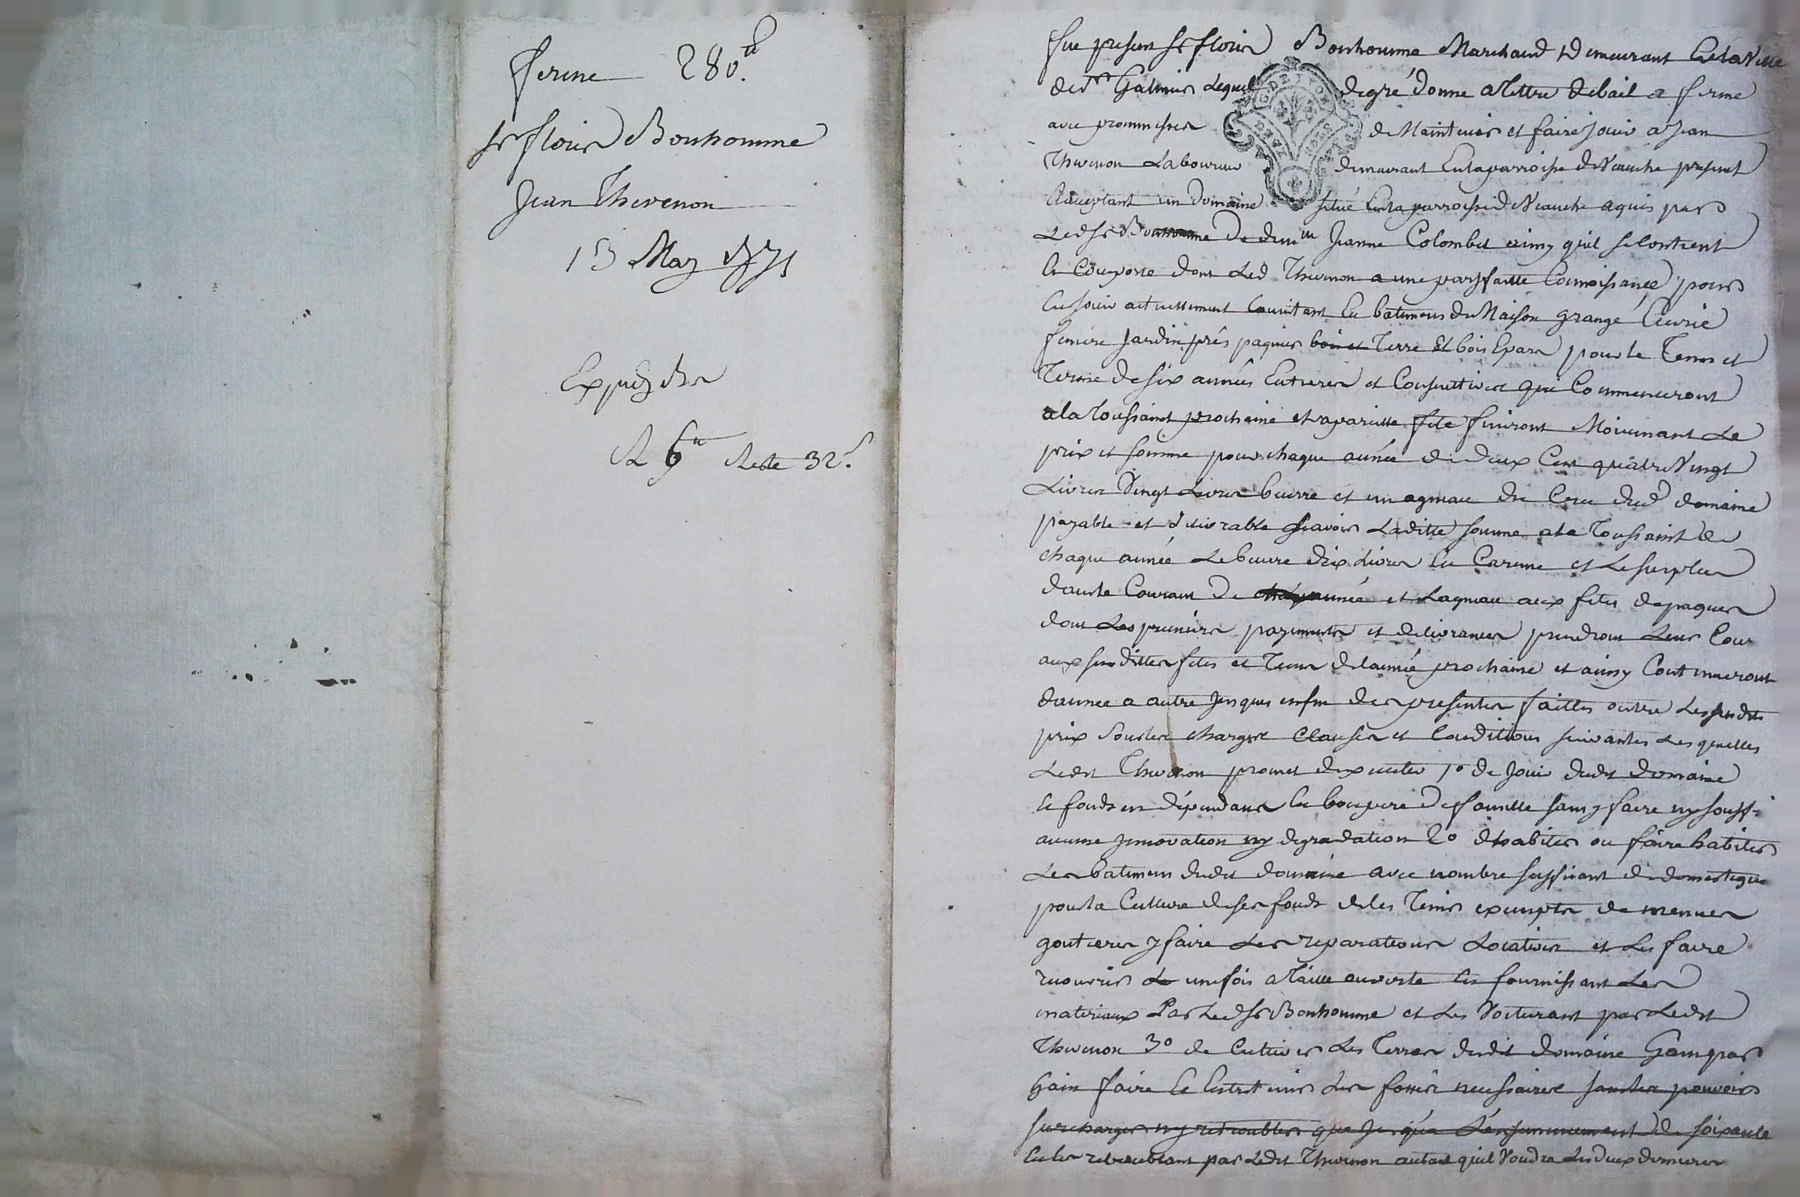 ferme 280.ᵗᵗ
Sr floris Bonhomme
Jean Thevenon
13 May 1771
Expedié
6ᵗᵗ Reste 32ˢ.
fut présent Sr floris Bonhomme Marchand demeurant en la Ville
de St Galmier Lequel de gré donne a tittre de bail a ferme
avec promesses de Maintenir et faire jouir a Jean
Thevenon Laboureur demeurant En la parroisse de Veauche présent
Acceptant un domaine situé En la parroisse de Veauche aquis par
Led Sr Bonhomme de Jeanne Colombet ainsy quil se Contient
et Comporte dont Led Thevenon a une parfaitte Connoissance pour
en jouir actuellement Consistant En batimens de Maison grange Ecurie
jardin prés paquier Terre Et bois Epars pour le Tems et
Terme de six années Entieres et Consecutives qui Commenceront
a la Toussaint prochaine et a pareille fete finiront Moienant Le
prix et somme pour chaque année de deux Cent quatre Vingt
Livres Vingt Livres beurre et un agneau du Cru dud domaine
payable et délivrable sçavoir Laditte somme a la Toussaint de
chaque année Le beurre dix Livres En Careme et Le surplus
dans le Courant de année et Lagneau aux fetes de paques
dont Les premiers payements et delivrances prendront Leur Cour
aux susdittes fetes et Tems de lannée prochaine et ainsy Continueront
dannee a autre jusques enfin des presentes faittes outre Les susdits
prix Sous les charges Clauses et Conditions suivantes Lesquelles
Ledit Thevenon promet dexecuter 1º de jouir dudit domaine
et fonds en dépendans En bon pere de famille sans y faire ny souffrir
aucune innovation ny degradation 2º dhabiter ou faire habiter
Les batimens dudit domaine avec nombre suffisant de domestiques
pour la Culture de ses fonds de les Tenir exempts de menues
goutieres y faire Les reparations Locatives et Les faire
recouvrir une fois a Taille ouverte En fournissant Les
materiaux Par Led Sr Bonhomme et Les Voiturant par Ledit
Thevenon 3º de Cultiver Les Terres dudit domaine Gain par
Gain faire et Entretenir Les fossés necessaires sans les pouvoir
surcharger ny retroubler que jusqu'a
En les retroublant par Ledit Thevenon autant quil Voudra Les deux dernieres